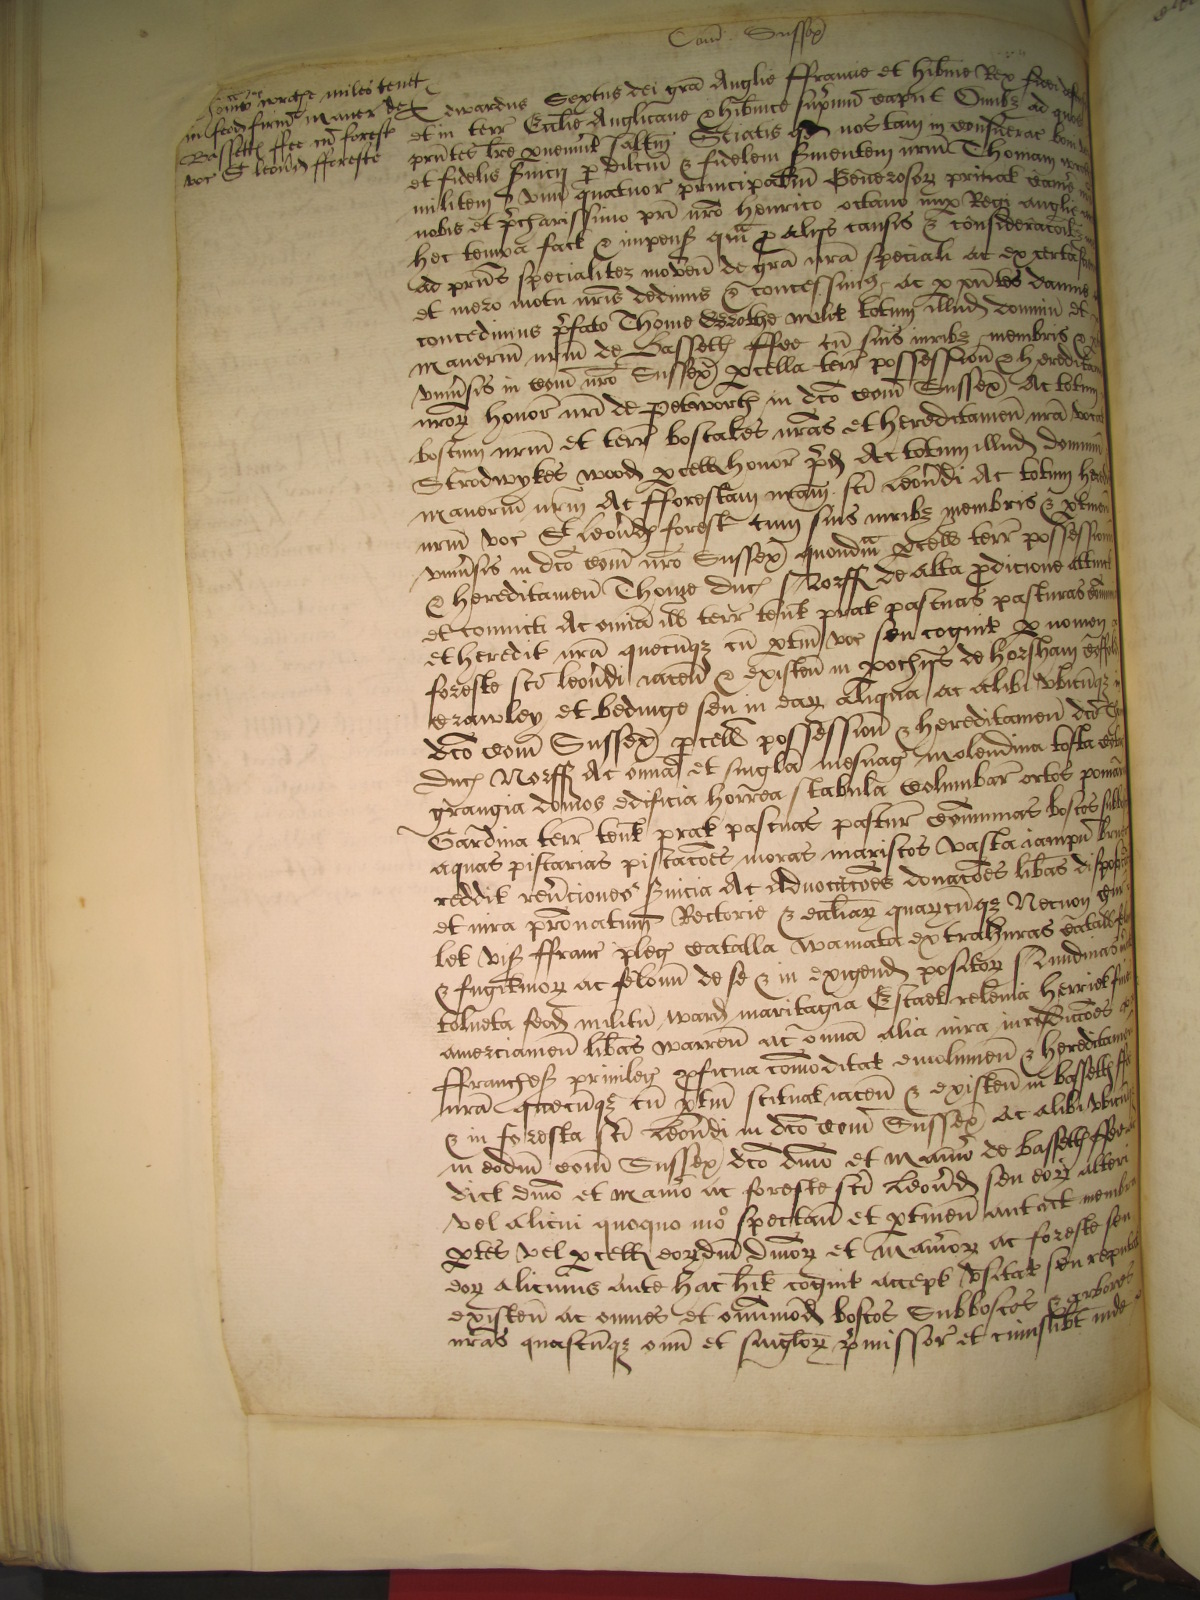 Com̄ Sussex̄
Thomas Wrothe miles tent̄
in feod firm̄ Maner̄ de
Bassett ffee in̄ forest
voc̄ S̄ Leon̄di fforeste
Edwardus Sextus dei gr̄a Anglie ffrancie et hib̄nie Rex fidei
et in terr̄ Eccl̄ie Anglicane & hib̄nice sup̄mu caput Omib3 ad quos
pn̄tes l̄re pvenerit salt̄m Sciatis qd̄ nos tam in consid̄erac̄ boni
et fidelis s̄vicij p dilc̄um & fidelem s̄vientem nr̄m Thomam
militem & vnu quatuor principaliu Generosor̄ privat̄ cam̄e
nobis et p̄charissimo pr̄i nr̄o Henrico octavo nup Regi Anglie
hec tempa fact̄ & impens̄ qm̄ p alijs causis & consideracōib3
ad pn̄s specialiter moven̄ de gr̄a nr̄a speciali ac ex certa
et mero motu nr̄is dedimus & concessim9 ac p pn̄tes damus
concedimus p̄fato Thome Wrothe milit̄ totum illud dominiu et
Maneriu nr̄m de Bassett ffee cū suis iurib3 membris &
vniv̄sis in com̄ nr̄o Sussex̄ pcella terr̄ possessionū & hereditam̄
nror̄ honor̄ nr̄i de Petworth in dc̄o com̄ Sussex̄ Ac totum
boscum nr̄m et terr̄ boscales nr̄as et hereditamen̄ nr̄a vocat̄
Strodwykes wood pcell honor̄ p̄d Ac totum illud dominiu
maneriu nr̄m Ac fforestam nr̄am sc̄i Leon̄di Ac totum
nr̄m voc̄ S̄ Leon̄ds forest cum suis iurib3 membris & ptinen̄
vniv̄sis in dc̄o com̄ nr̄o Sussex̄ quondm̄ pcell terr̄ possession̄
& hereditamen̄ Thome Duc̄ Norff̄ de alta pdicione attinct̄
et convicti Ac om̄ia ill̄ terr̄ tent̄ prat̄ pascuas pasturas
et heredit̄ nr̄a quecūq3 cū ptin̄ voc̄ seu cognit̄ p nomen
foreste sc̄i Leon̄di iacen̄ & existen̄ in pochijs de Horsham
Crawley et Bedinge seu in ear̄ aliqua ac alibi vbicūq3 in
dc̄o com̄ Sussex̄ pcell possession̄ & hereditamen̄ dc̄i
Duc̄ Norff̄ Ac om̄ia et singl̄a mesuaḡ molendina tofta
grangia domos edificia horrea stabula columbar̄ ortos pomar̄
Gardina terr̄ tent̄ prat̄ pascuas pastur̄ com̄unias boscos
aquas piscarias piscacōes moras mariscos vasta iampn̄
reddit̄ rev̄ciones s̄vicia Ac advocacōes donacōes lib̄as disposic̄
et iura pronatuu Rectorie & eccliar̄ quarcūq3 Necnon
let̄ vis̄ ffranc̄ pleḡ catalla waviata extrahuras catall
& fugitivor̄ ac felonū de se & in exigend̄ positor̄ Nundinas
tolneta feod̄ militu ward̄ maritagia Escaet̄ relevia herriet̄
amerciamen̄ lib̄as warren̄ ac om̄ia alia iura iurisdiccōes
ffranches̄ privileḡ pficua com̄oditat̄ emolumen̄ & hereditamen̄
nr̄a quecūq3 cū ptin̄ scituat̄ iacen̄ & existen̄ in Bassett
& in foresta sc̄i Leon̄di in dc̄o com̄ Sussex̄ ac alibi vbicūq3
in eodm̄ com̄ Sussex̄ dc̄o dn̄io et Man̄io de Bassett ffee
dict̄ dn̄io et man̄io ac foreste sc̄i Leon̄d̄ seu eor̄ alteri
vel alicui quoquo mo spectan̄ et ptinen̄ aut vt membra
ptes vel pcell eordm̄ dn̄ior̄ et Man̄ior̄ ac foreste seu
eor̄ alicuius ante hac h̄it̄ cognit̄ accept̄ vsitat̄ seu reputat̄
existen̄ ac omnes et om̄imod̄ boscos Subboscos & arbores
nr̄as quascūq3 om̄i et singlor̄ p̄missor̄ et cuiuslibt̄ inde